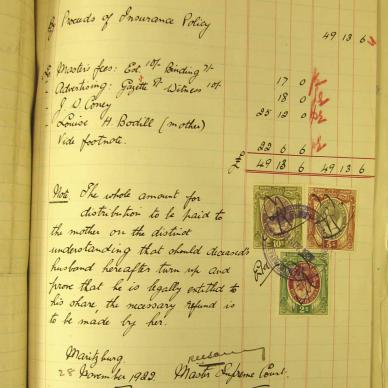 By Proceeds of Insurance Policy 49 13 6
To Master's fees: Est. 10/- Binding 7/- 17 0
" Advertising: Gazette 8/- Witness 10/- 18 0
" J. D. Coney 25 12 0
" Louise H. Bodill (mother)
Vide footnote. 22 6 6
£ 49 13 6 49 13 6
Note. The whole amount for
distribution to be paid to
the mother on the district
understanding that should deceased's
husband hereafter turn up and
prove that he is legally entitled to
his share, the necessary refund is
to be made by her.
Maritzburg
28 November 1922. Master Supreme Court.